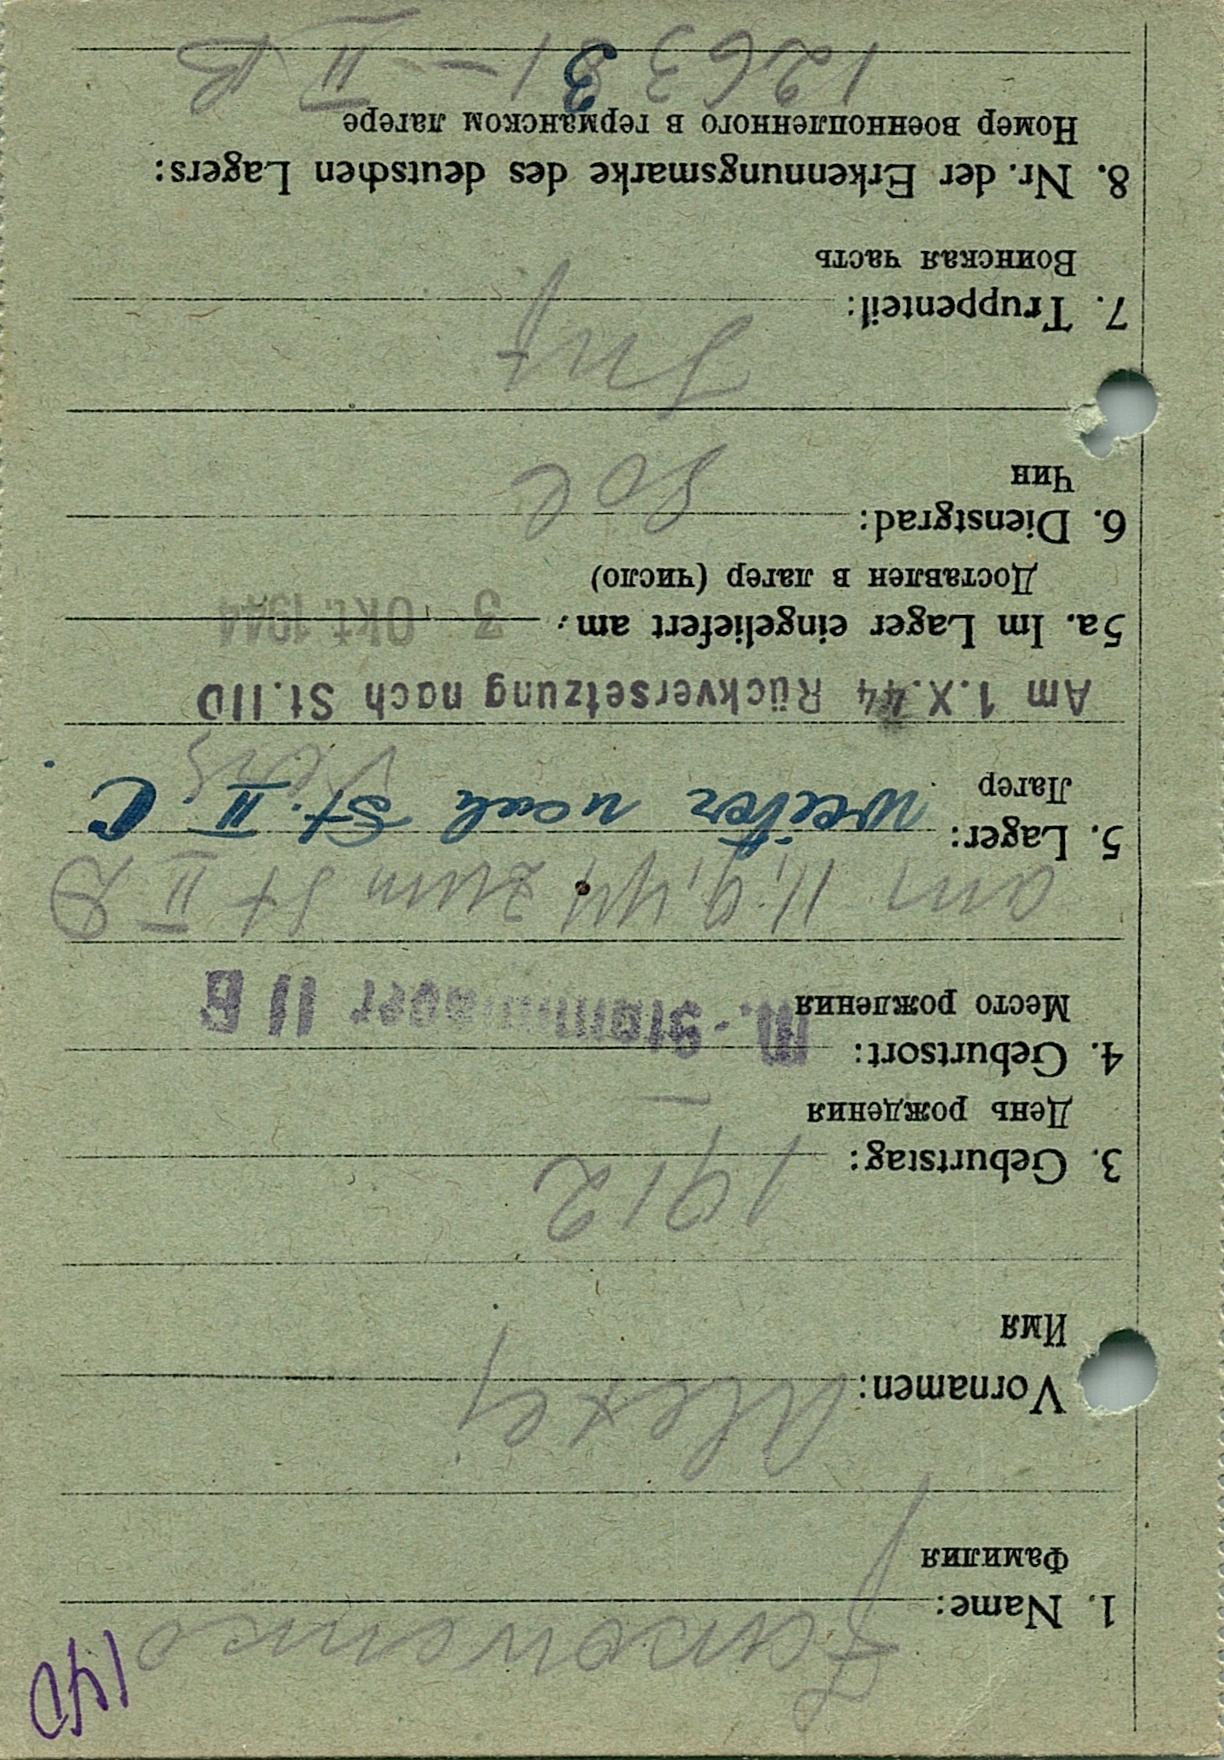 1. Name:
Фамилия
Vornamen: Alexej
Имя
3. Geburtstag: 1912
День рождения
4. Geburtsort: —
Место рождения
M.-Stammlager II B
am 11.9.44 zum St II D
5. Lager: weiter nach St. II C
Лагер
Am 1.X.44 Rückversetzung nach St.IID
5a. Im Lager eingeliefert am: 3 Okt. 1944
Доставлен в лагер (число)
6. Dienstgrad: Sol
Чин
7. Truppenteil: Inf
Воинская часть
8. Nr. der Erkennungsmarke des deutschen Lagers:
Номер военнопленного в германском лагере